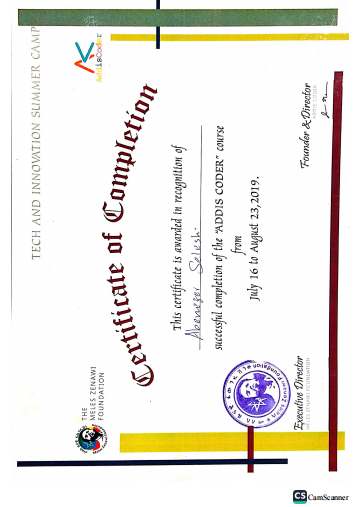 TECH AND INNOVATION SUMMER CAMP
THE
MELES ZENAWI
FOUNDATION
AddisCoder
Certificate of Completion
This certificate is awarded in recognition of
Abenezer Seleshi
successful completion of the "ADDIS CODER" course
from
July 16 to August 23, 2019.
Executive Director
MELES ZENAWI FOUNDATION
Founder & Director
ADDIS CODER
CS CamScanner